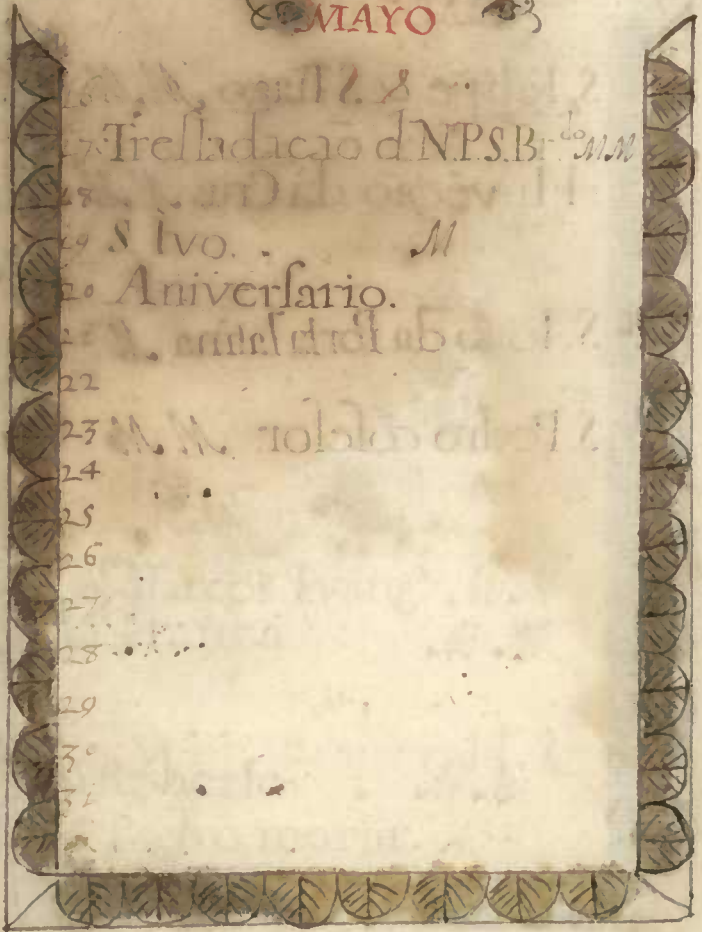 MAYO
16
17 Treſladação d N.P.S.Br.do MM
18
19 S Ivo. . M
20 Aniverſario.
21
22
23
24
25
26
27
28
29
30
31